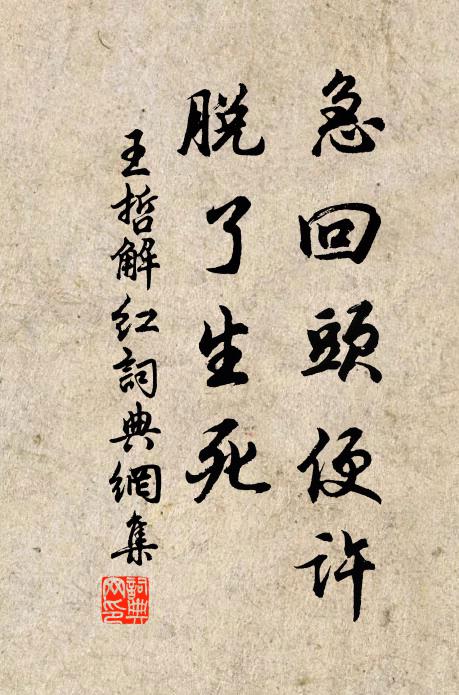 急回頭便許
脫了生死
王哲解紅詞典網集
詞典網印